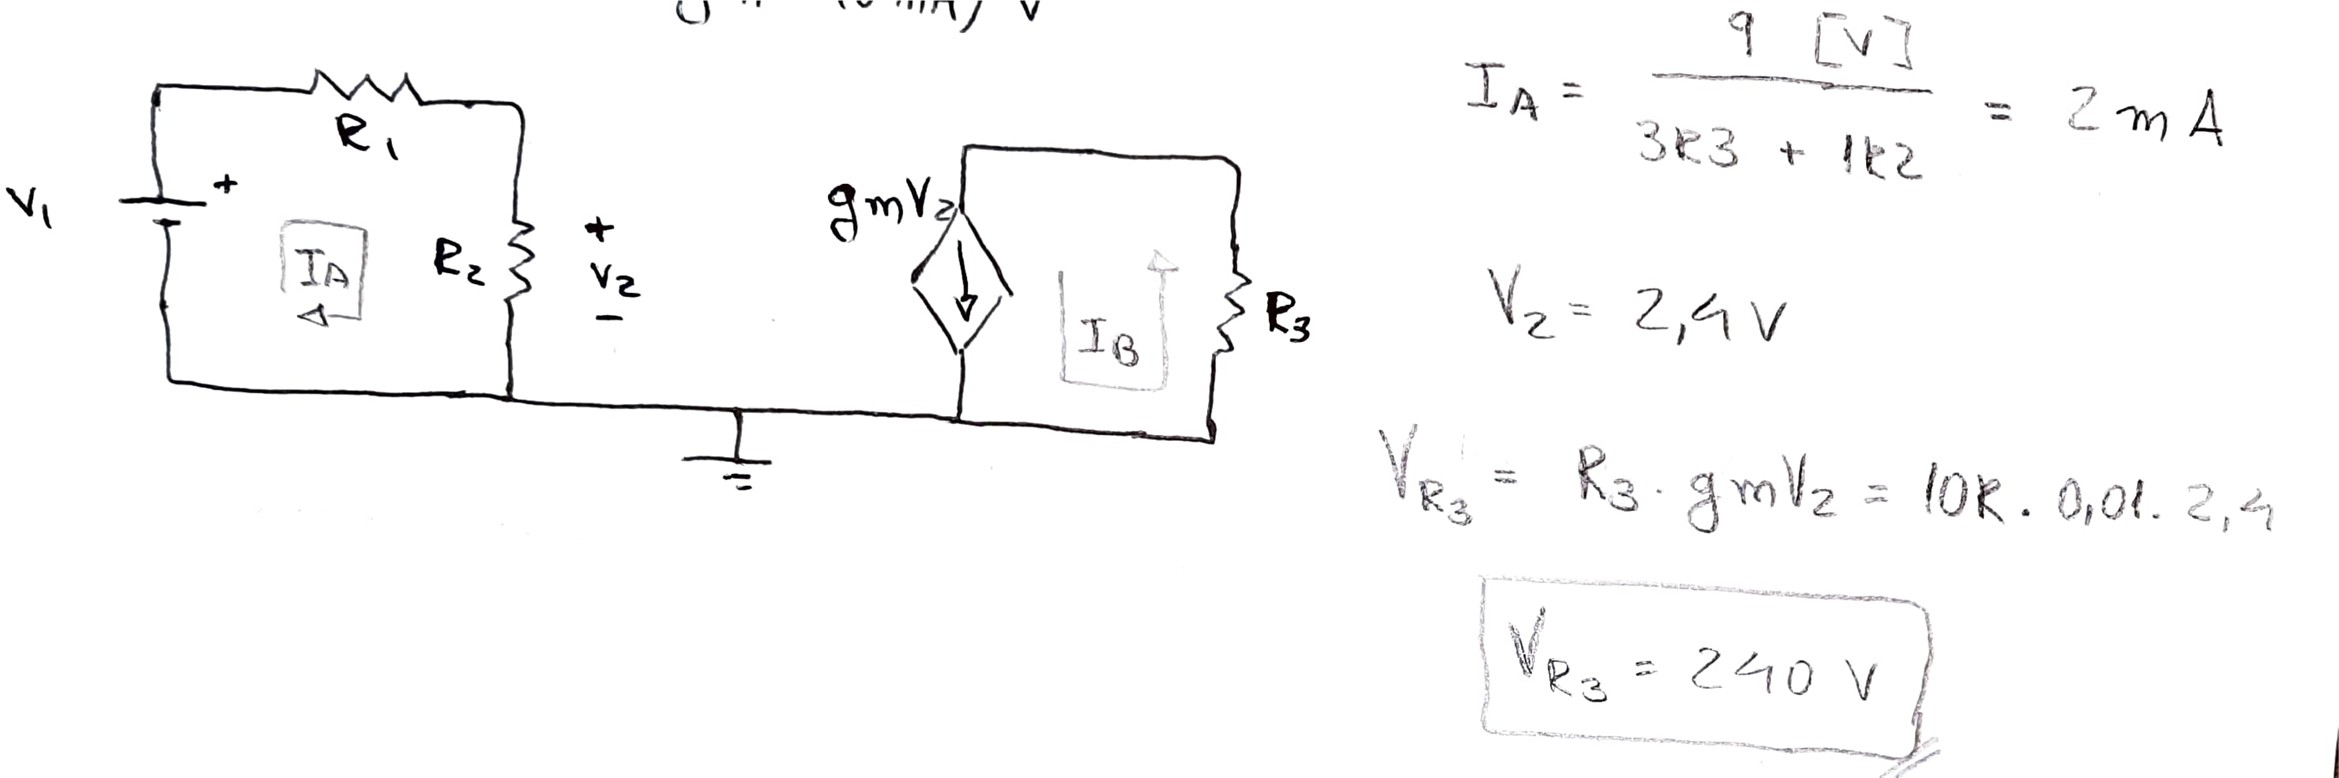 R1
V1
+
IA
R2
+
V2
-
gmV2
IB
R3
IA = 9 [V] / 3k3 + 1k2 = 2 mA
V2 = 2,4 V
VR3 = R3 . gmV2 = 10k . 0,01 . 2,4
VR3 = 240 V